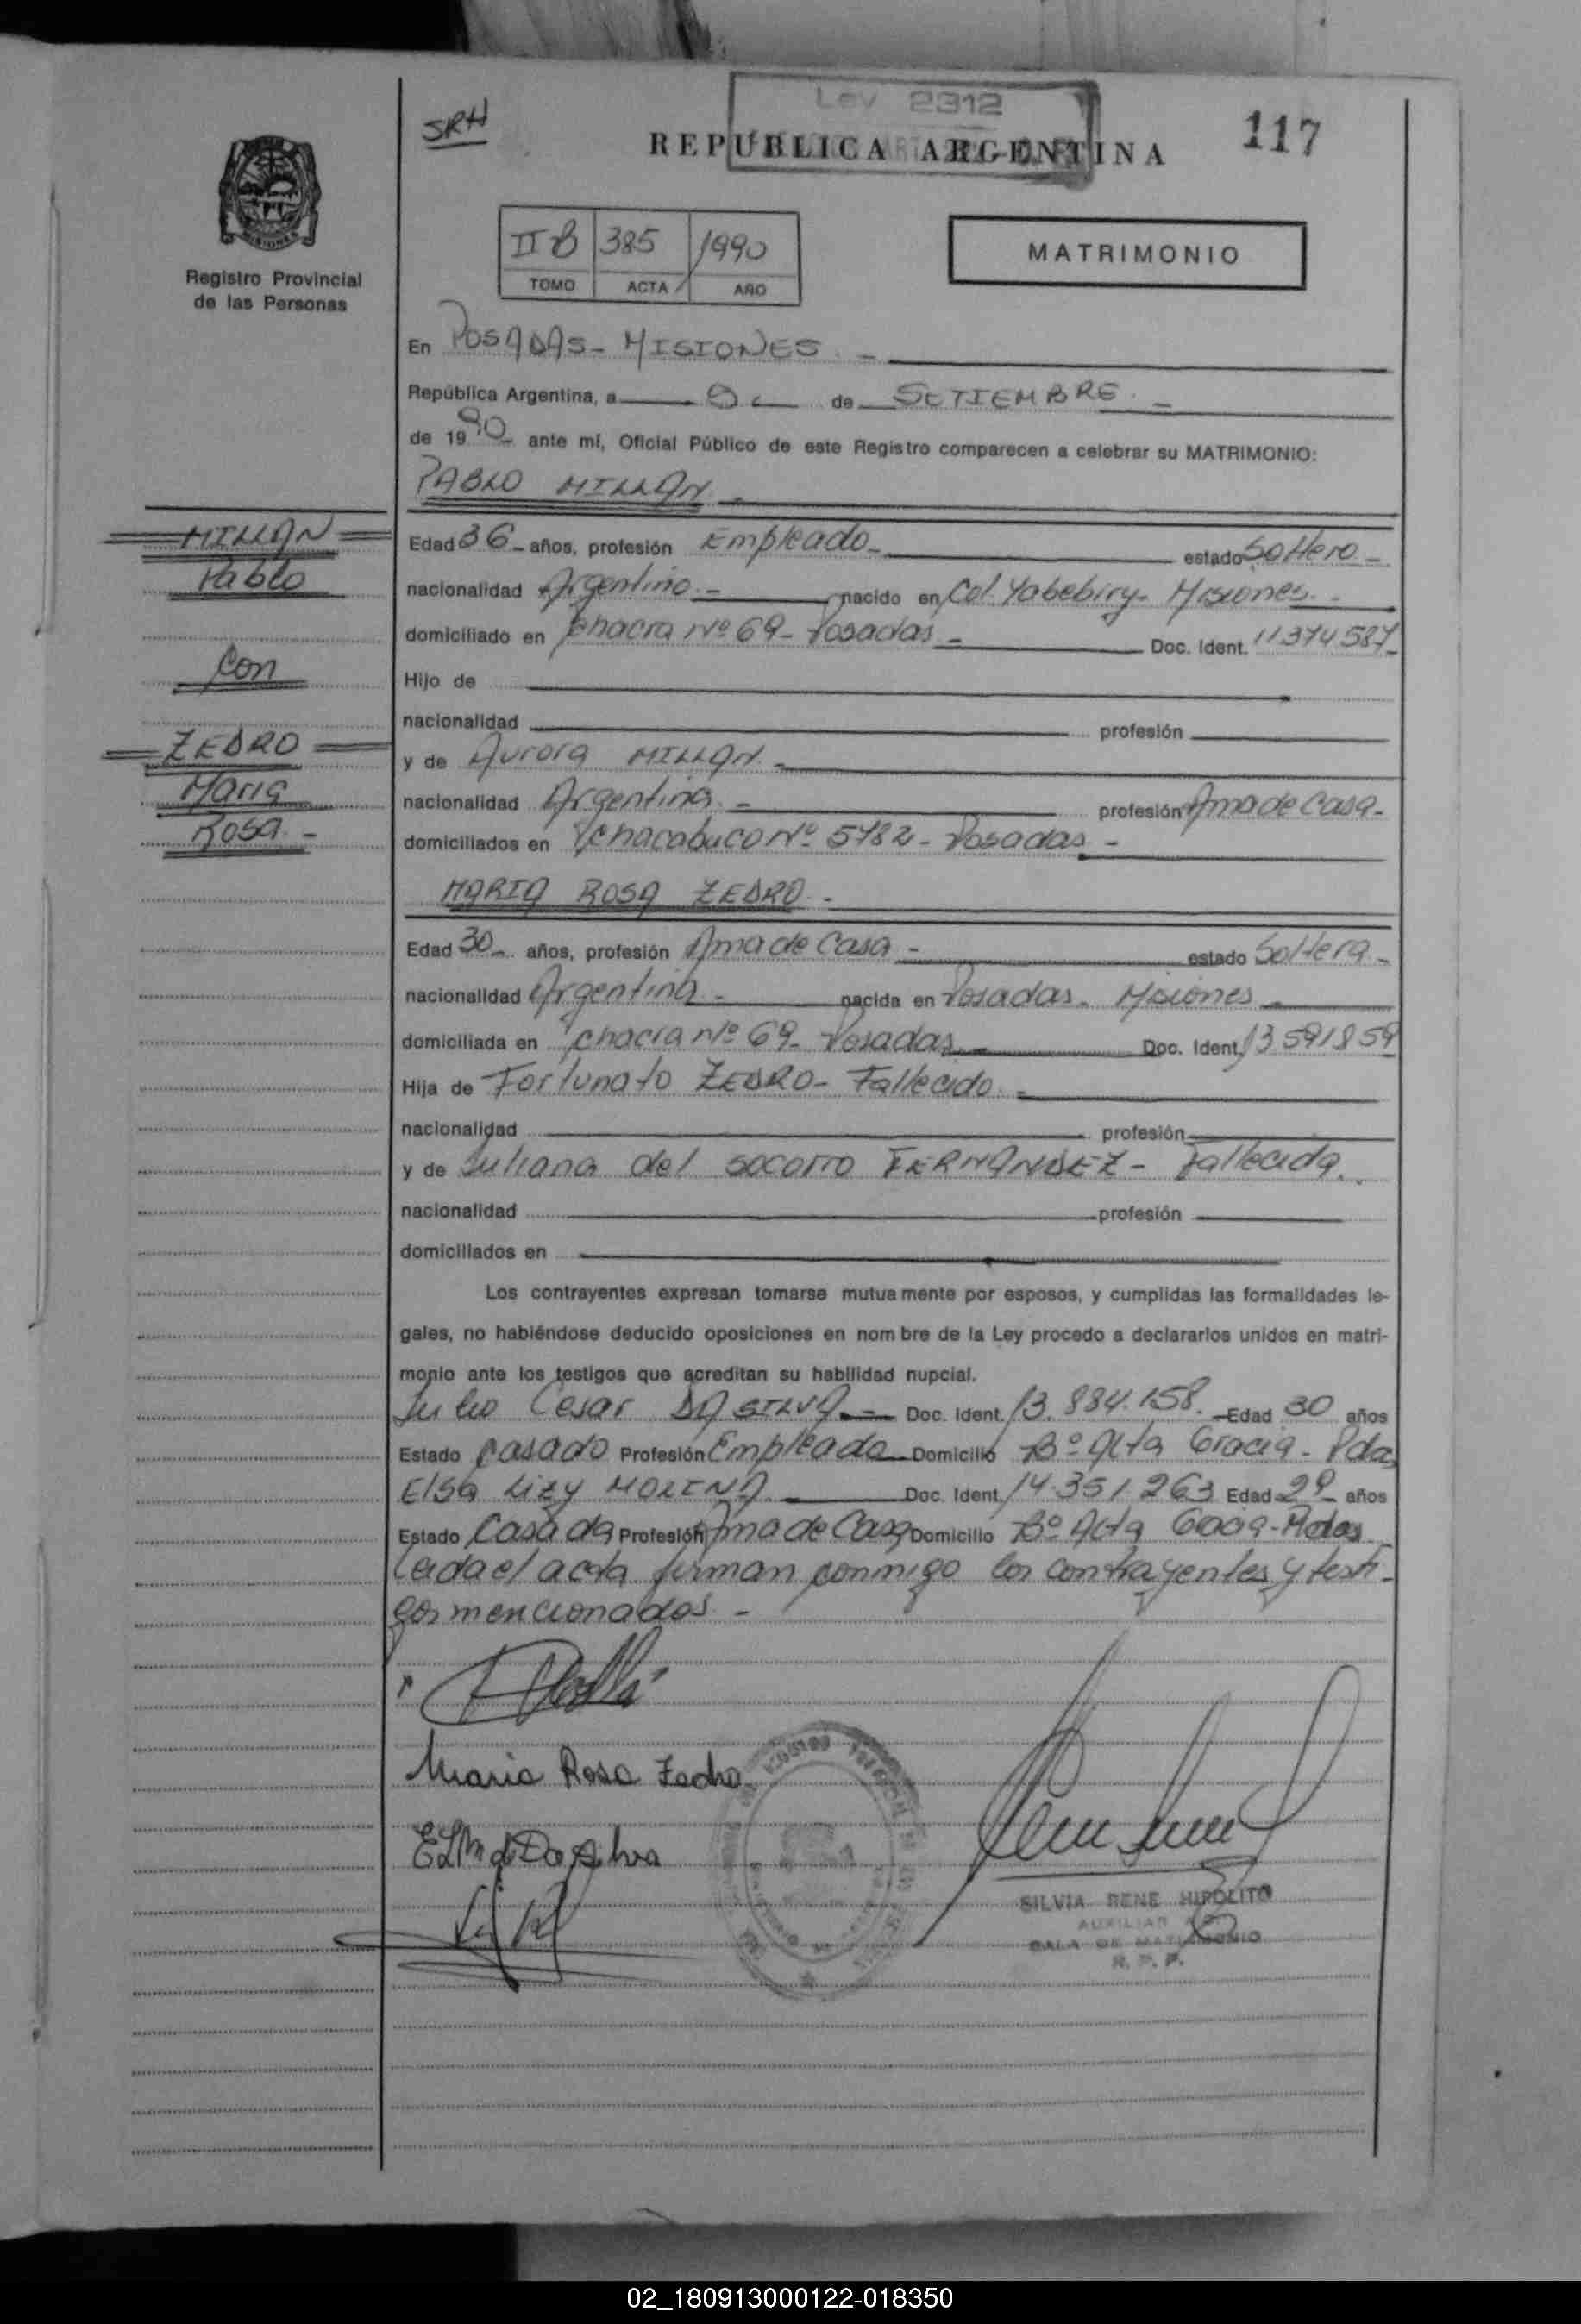 SRH
Ley 2312
REPUBLICA ARGENTINA
117
Registro Provincial
de las Personas
II B 385 1990
TOMO ACTA AÑO
MATRIMONIO
En POSADAS - MISIONES -
República Argentina, a de SETIEMBRE. -
de 1990 ante mí, Oficial Público de este Registro comparecen a celebrar su MATRIMONIO:
PABLO MILLAN -
MILLAN
Pablo
Con
ZEDRO
Maria
Rosa -
Edad 36 - años, profesión Empleado - estado Soltero -
nacionalidad Argentino - nacido en Col. Yabebiry - Misiones. -
domiciliado en Chacra Nº 69 - Posadas - Doc. Ident. 11.374.587 -
Hijo de
nacionalidad profesión
y de Aurora MILLAN -
nacionalidad Argentina - profesión Ama de Casa -
domiciliados en Chacabuco Nº 5782 - Posadas -
MARIA ROSA ZEDRO -
Edad 30 - años, profesión Ama de Casa - estado Soltera -
nacionalidad Argentina - nacida en Posadas - Misiones -
domiciliada en Chacra Nº 69 - Posadas - Doc. Ident. 13.591859
Hija de Fortunato ZEDRO - Fallecido -
nacionalidad profesión
y de Juliana del Socorro FERNANDEZ - Fallecida.
nacionalidad profesión
domiciliados en
Los contrayentes expresan tomarse mutuamente por esposos, y cumplidas las formalidades le-
gales, no habiéndose deducido oposiciones en nombre de la Ley procedo a declararlos unidos en matri-
monio ante los testigos que acreditan su habilidad nupcial.
Julio Cesar DA SILVA - Doc. Ident. 13.884.158. - Edad 30 años
Estado Casado Profesión Empleado Domicilio Bº Alta Gracia - Pdas
Elsa Lizy MOLINA Doc. Ident. 14.351.263 Edad 29 - años
Estado Casada Profesión Ama de Casa Domicilio Bº Alta Gracia - Pdas
Leida el acta firman conmigo los contrayentes y testi-
gos mencionados. -
Maria Rosa Zedro
ELM de Da Silva
SILVIA RENE HIPOLITO
AUXILIAR
SALA DE MATRIMONIO
R. P. P.
02_180913000122-018350